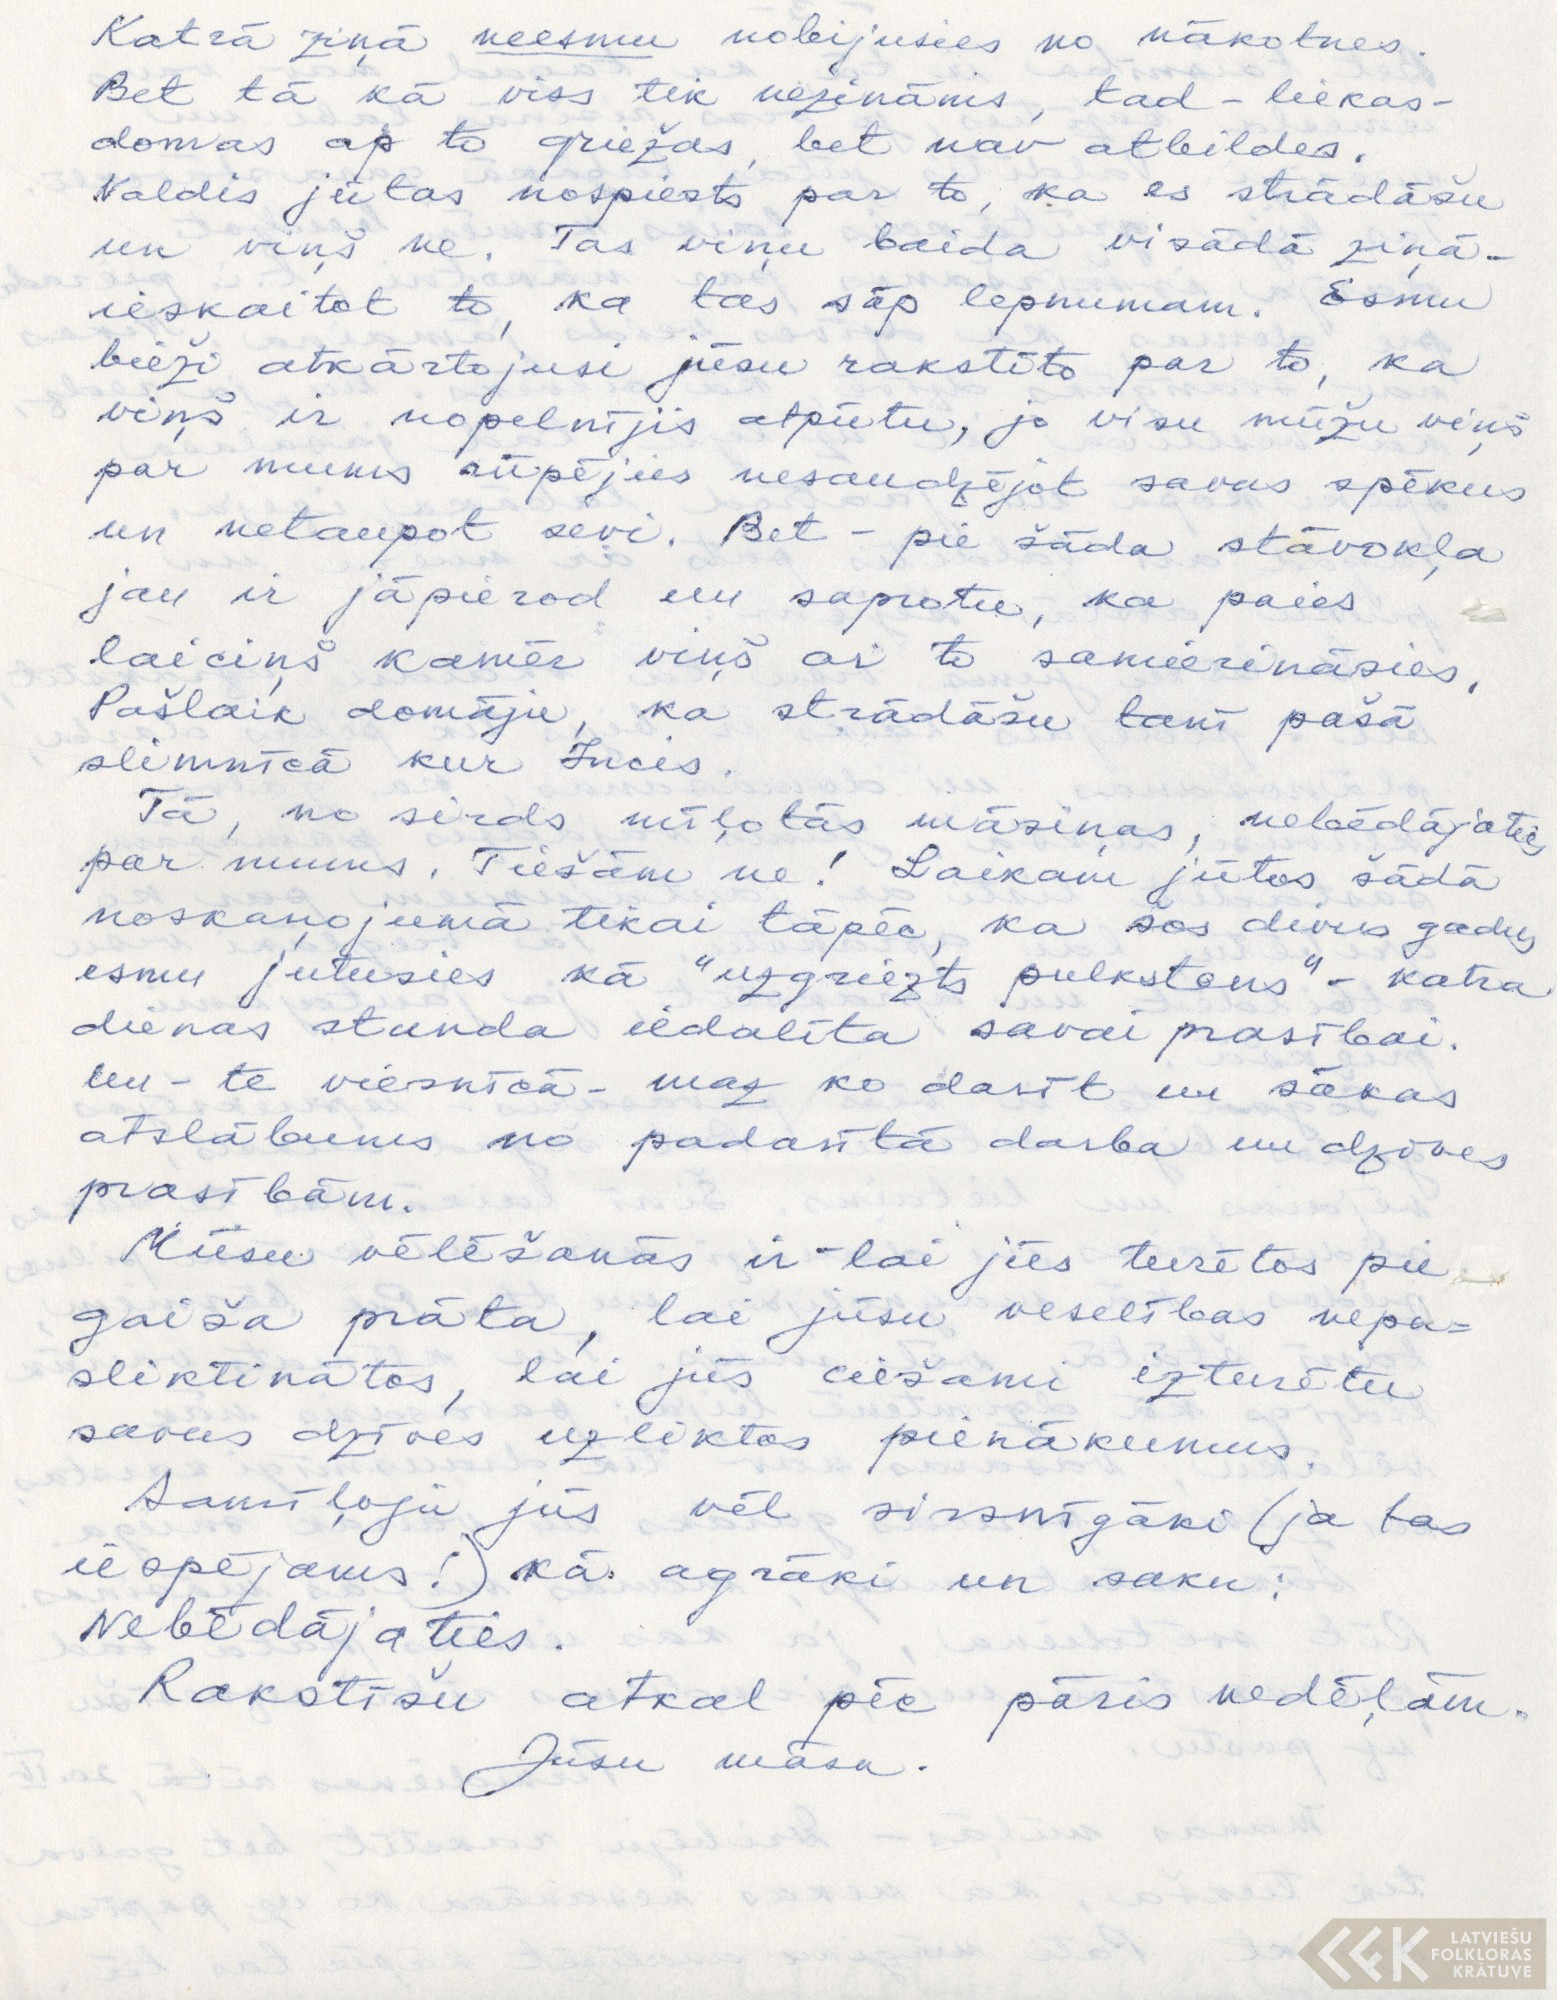 Katrā ziņā neesmu nobijusies no nākotnes.
Bet tā kā viss tik nezināms, tad – liekas –
domas ap to griežas, bet nav atbildes.
Valdis jūtas nospiests par to, ka es strādāšu
un viņš ne. Tas viņu baida visādā ziņā –
ieskaitot to, ka tas sāp lepnumam. Esmu
bieži atkārtojusi jūsu rakstīto par to, ka
viņš ir nopelnījis atpūtu, jo visu mūžu viņš
par mums rūpējies nesaudzējot savus spēkus
un netaupot sevi. Bet – pie šāda stāvokļa
jau ir jāpierod un saprotu, ka paies
laiciņš kamēr viņš ar to samierināsies.
Pašlaik domāju, ka strādāšu tanī pašā
slimnīcā kur Incis.
Tā, no sirds mīļotās māsiņas, nebēdājaties
par mums. Tiešām ne! Laikam jūtos šādā
noskaņojumā tikai tāpēc, ka šos divus gadus
esmu jutusies kā "uzgriezts pulkstens" – katra
dienas stunda iedalīta savai prasībai.
Un – te viesnīcā – maz ko darīt un sākas
atslābums no padarītā darba un dzīves
prasībām.
Mūsu vēlēšanās ir – lai jūs turētos pie
gaiša prāta, lai jūsu veselības nepa=
sliktinātos, lai jūs ciešami izturētu
savus dzīves uzliktos pienākumus.
Samīļoju jūs vēl sirsnīgāki (ja tas
iespējams!) kā agrāki un saku:
Nebēdājaties.
Rakstīšu atkal pēc pāris nedēļām.
Jūsu māsa.
LATVIEŠU
FOLKLORAS
KRĀTUVE